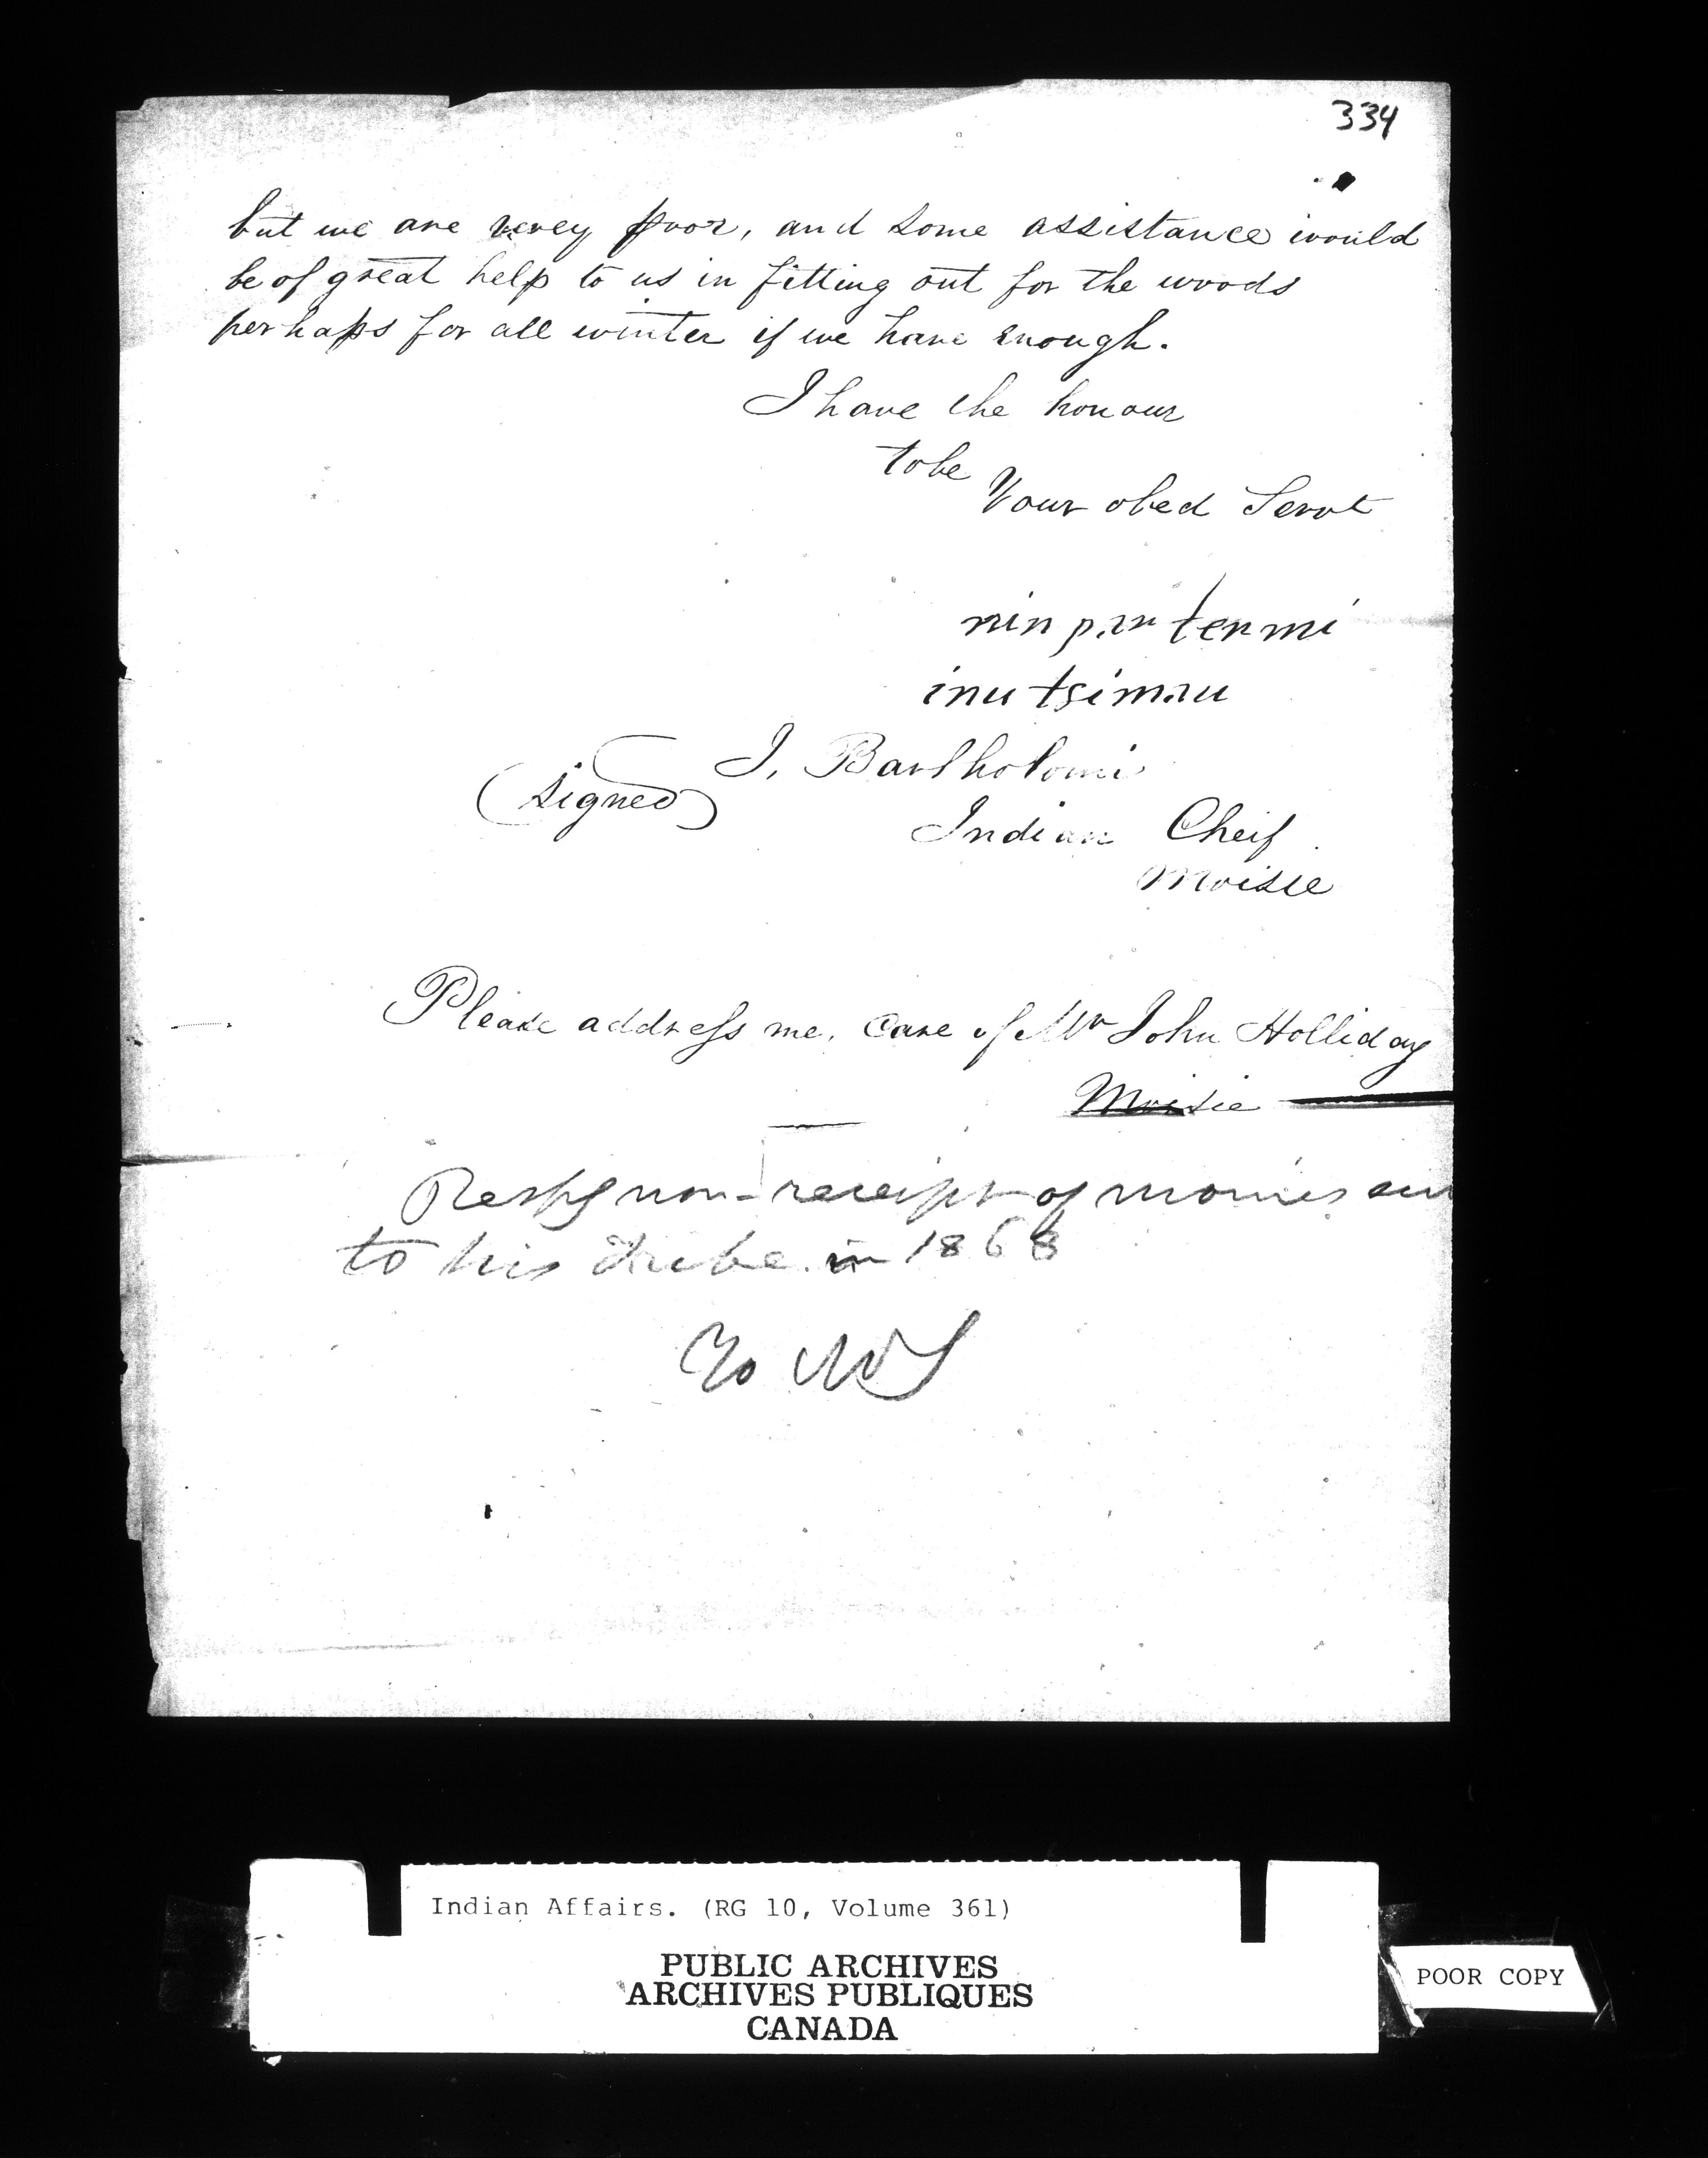 334
but we are verey poor, and some assistance would
be of great help to us in fitting out for the woods
perhaps for all winter if we have enough.
I have the honour
to be
Your obed Servt
nin
inutsimau
(signed) I, Bartholomi
Indian Cheif
Moisie
Please address me, care of Mr John Holliday
Moisie
Respg non-receipt of monies
to his Tribe in 1868
Indian Affairs. (RG 10, Volume 361)
PUBLIC ARCHIVES
ARCHIVES PUBLIQUES
CANADA
POOR COPY